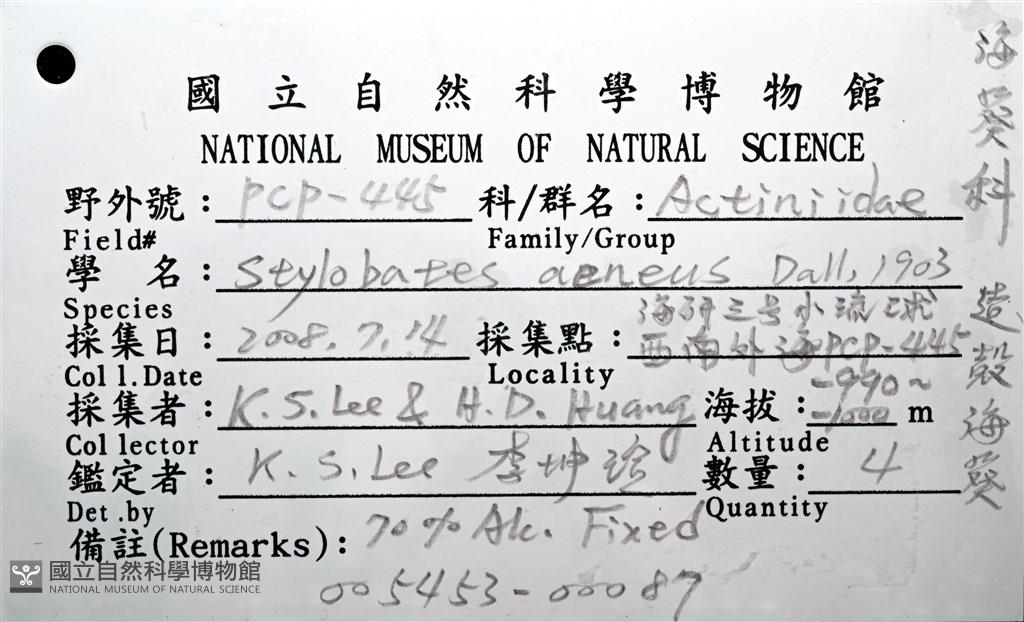 國立自然科學博物館
NATIONAL MUSEUM OF NATURAL SCIENCE
野外號：PCP-445 科/群名：Actiniidae
Field# Family/Group
學 名：Stylobates aeneus Dall, 1903
Species
海研三号小流球
採集日：2008.7.14 採集點：西南外海PCP-445
Coll.Date Locality
-990~
採集者：K.S.Lee & H.D. Huang 海拔：-1000 m
Collector Altitude
鑑定者：K.S.Lee 李坤瑄 數量：4
Det.by Quantity
備註(Remarks)：70% Alc. Fixed
005453-00087
海葵科 造殼海葵
國立自然科學博物館
NATIONAL MUSEUM OF NATURAL SCIENCE